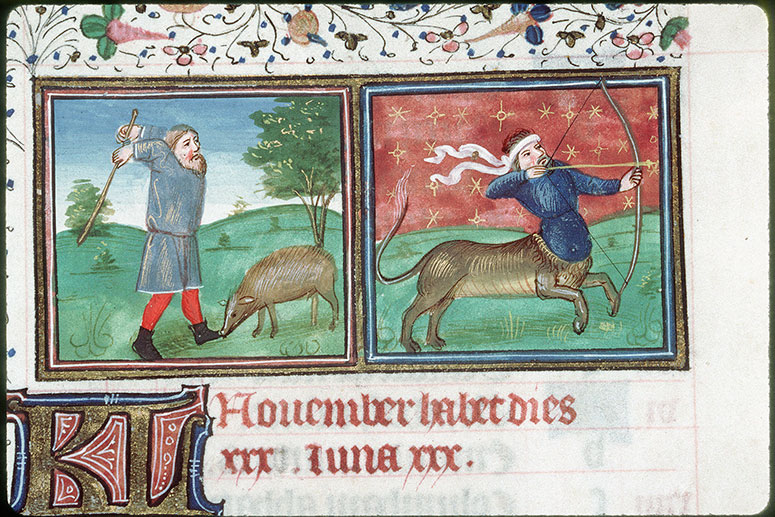 KL Nouember habet dies
xxx . luna xxx .